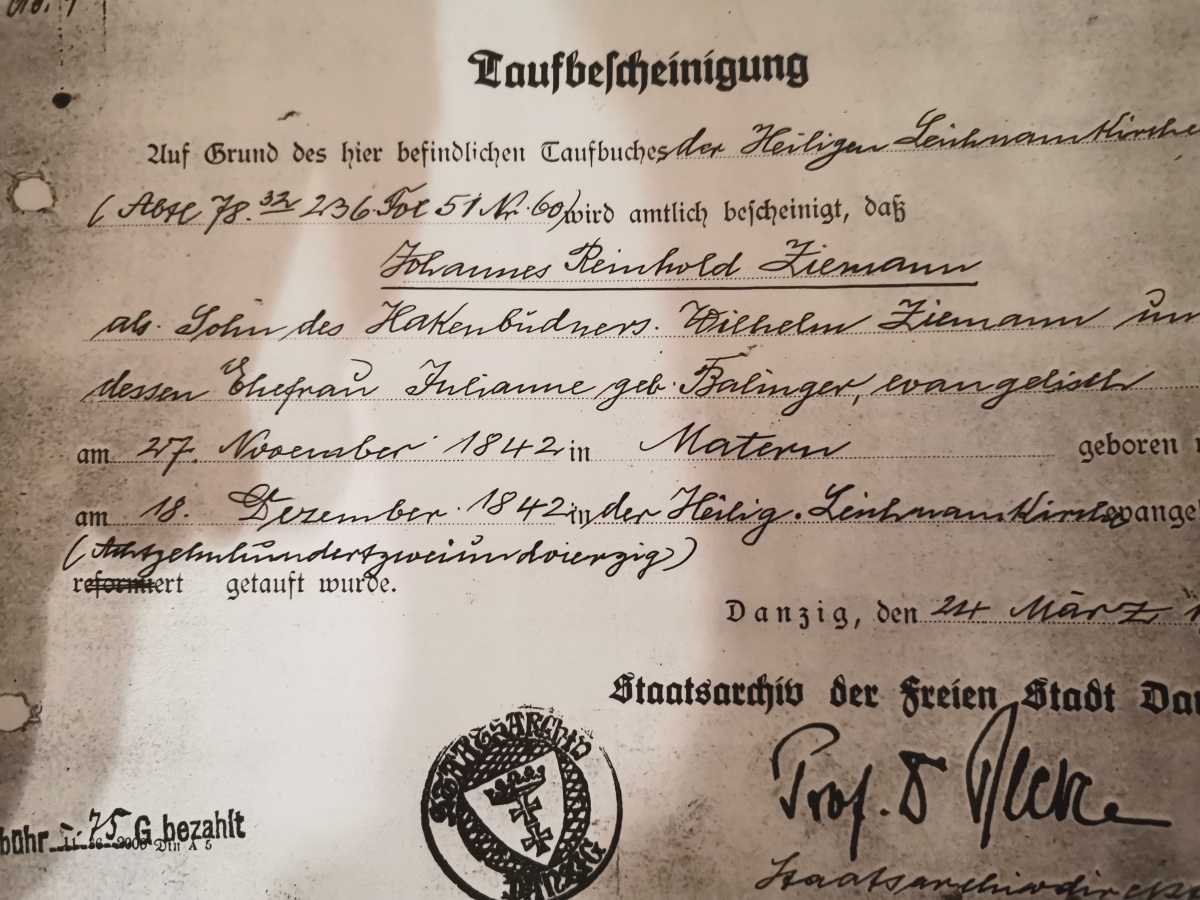 No. 1
Taufbescheinigung
Auf Grund des hier befindlichen Taufbuches der Heiligen Leichnamkirche
(Abtl 78. 32 236 Fol 51 Nr. 60) wird amtlich bescheinigt, daß
Johannes Reinhold Ziemann
als Sohn des Hakenbüdners Wilhelm Ziemann un
dessen Ehefrau Julianne geb. Balinger, evangelisch
am 27. November 1842 in Matern geboren
am 18. Dezember 1842 in der Heilig. Leichnamkirche evangel
(Achtzehnhundertzweiundvierzig)
reformiert getauft wurde.
Danzig, den 24 März
Staatsarchiv der Freien Stadt Dan
Prof. D
Staatsarchivdirektor
STAATSARCHIV DANZIG
bühr 75 G bezahlt
2000 Din A 5